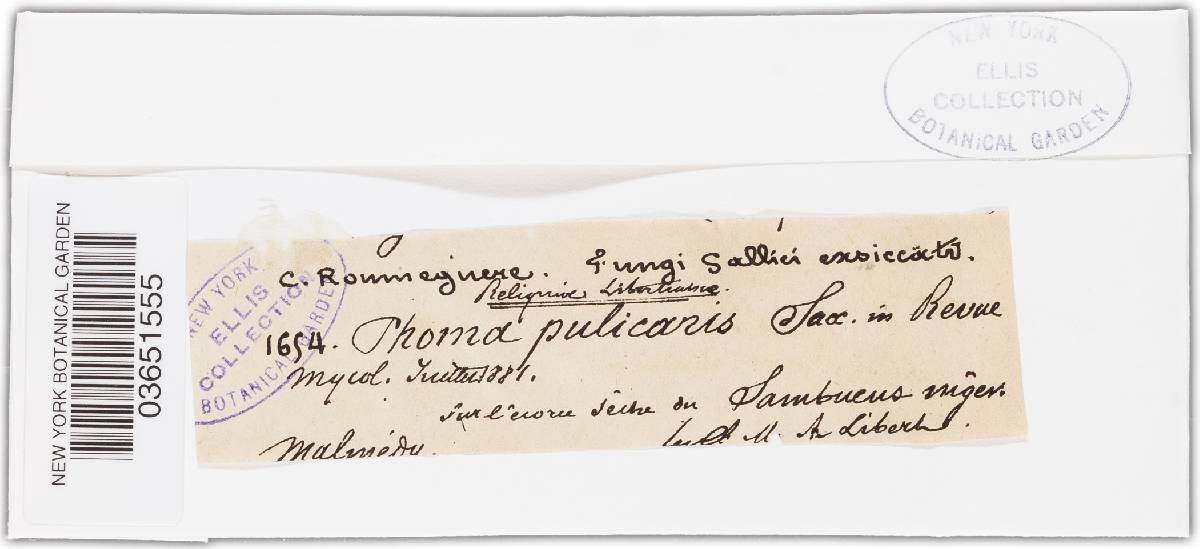 NEW YORK
ELLIS
COLLECTION
BOTANICAL GARDEN
NEW YORK BOTANICAL GARDEN
03651555
NEW YORK
ELLIS
COLLECTION
BOTANICAL GARDEN
C. Roumeguere. Fungi Gallici exsiccati.
Reliquiae Libertianae.
1654. Phoma pulicaris Sacc. in Revue
Mycol. Juillet 1881.
Sur l'écorce sèche du Sambucus niger.
Malmédy. M. A Libert.